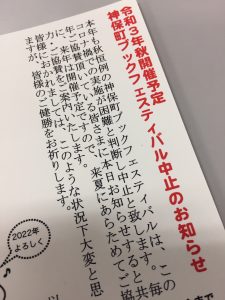 令和3年秋開催予定
神保町ブックフェスティバル中止のお知らせ
本年も秋恒例の神保町ブックフェスティバルは、この
コロナ禍での実施が困難と判断し中止と致します。毎
年ご協賛頂いている皆さまに本日お知らせすると共
に、来年は開催予定ですので、来夏にあらためてご協
力、ご協賛をご案内いたします。
皆様におかれましては、このような状況下大変と思
いますが、皆様のご健勝をお祈りします。
以
2022年
よろしく